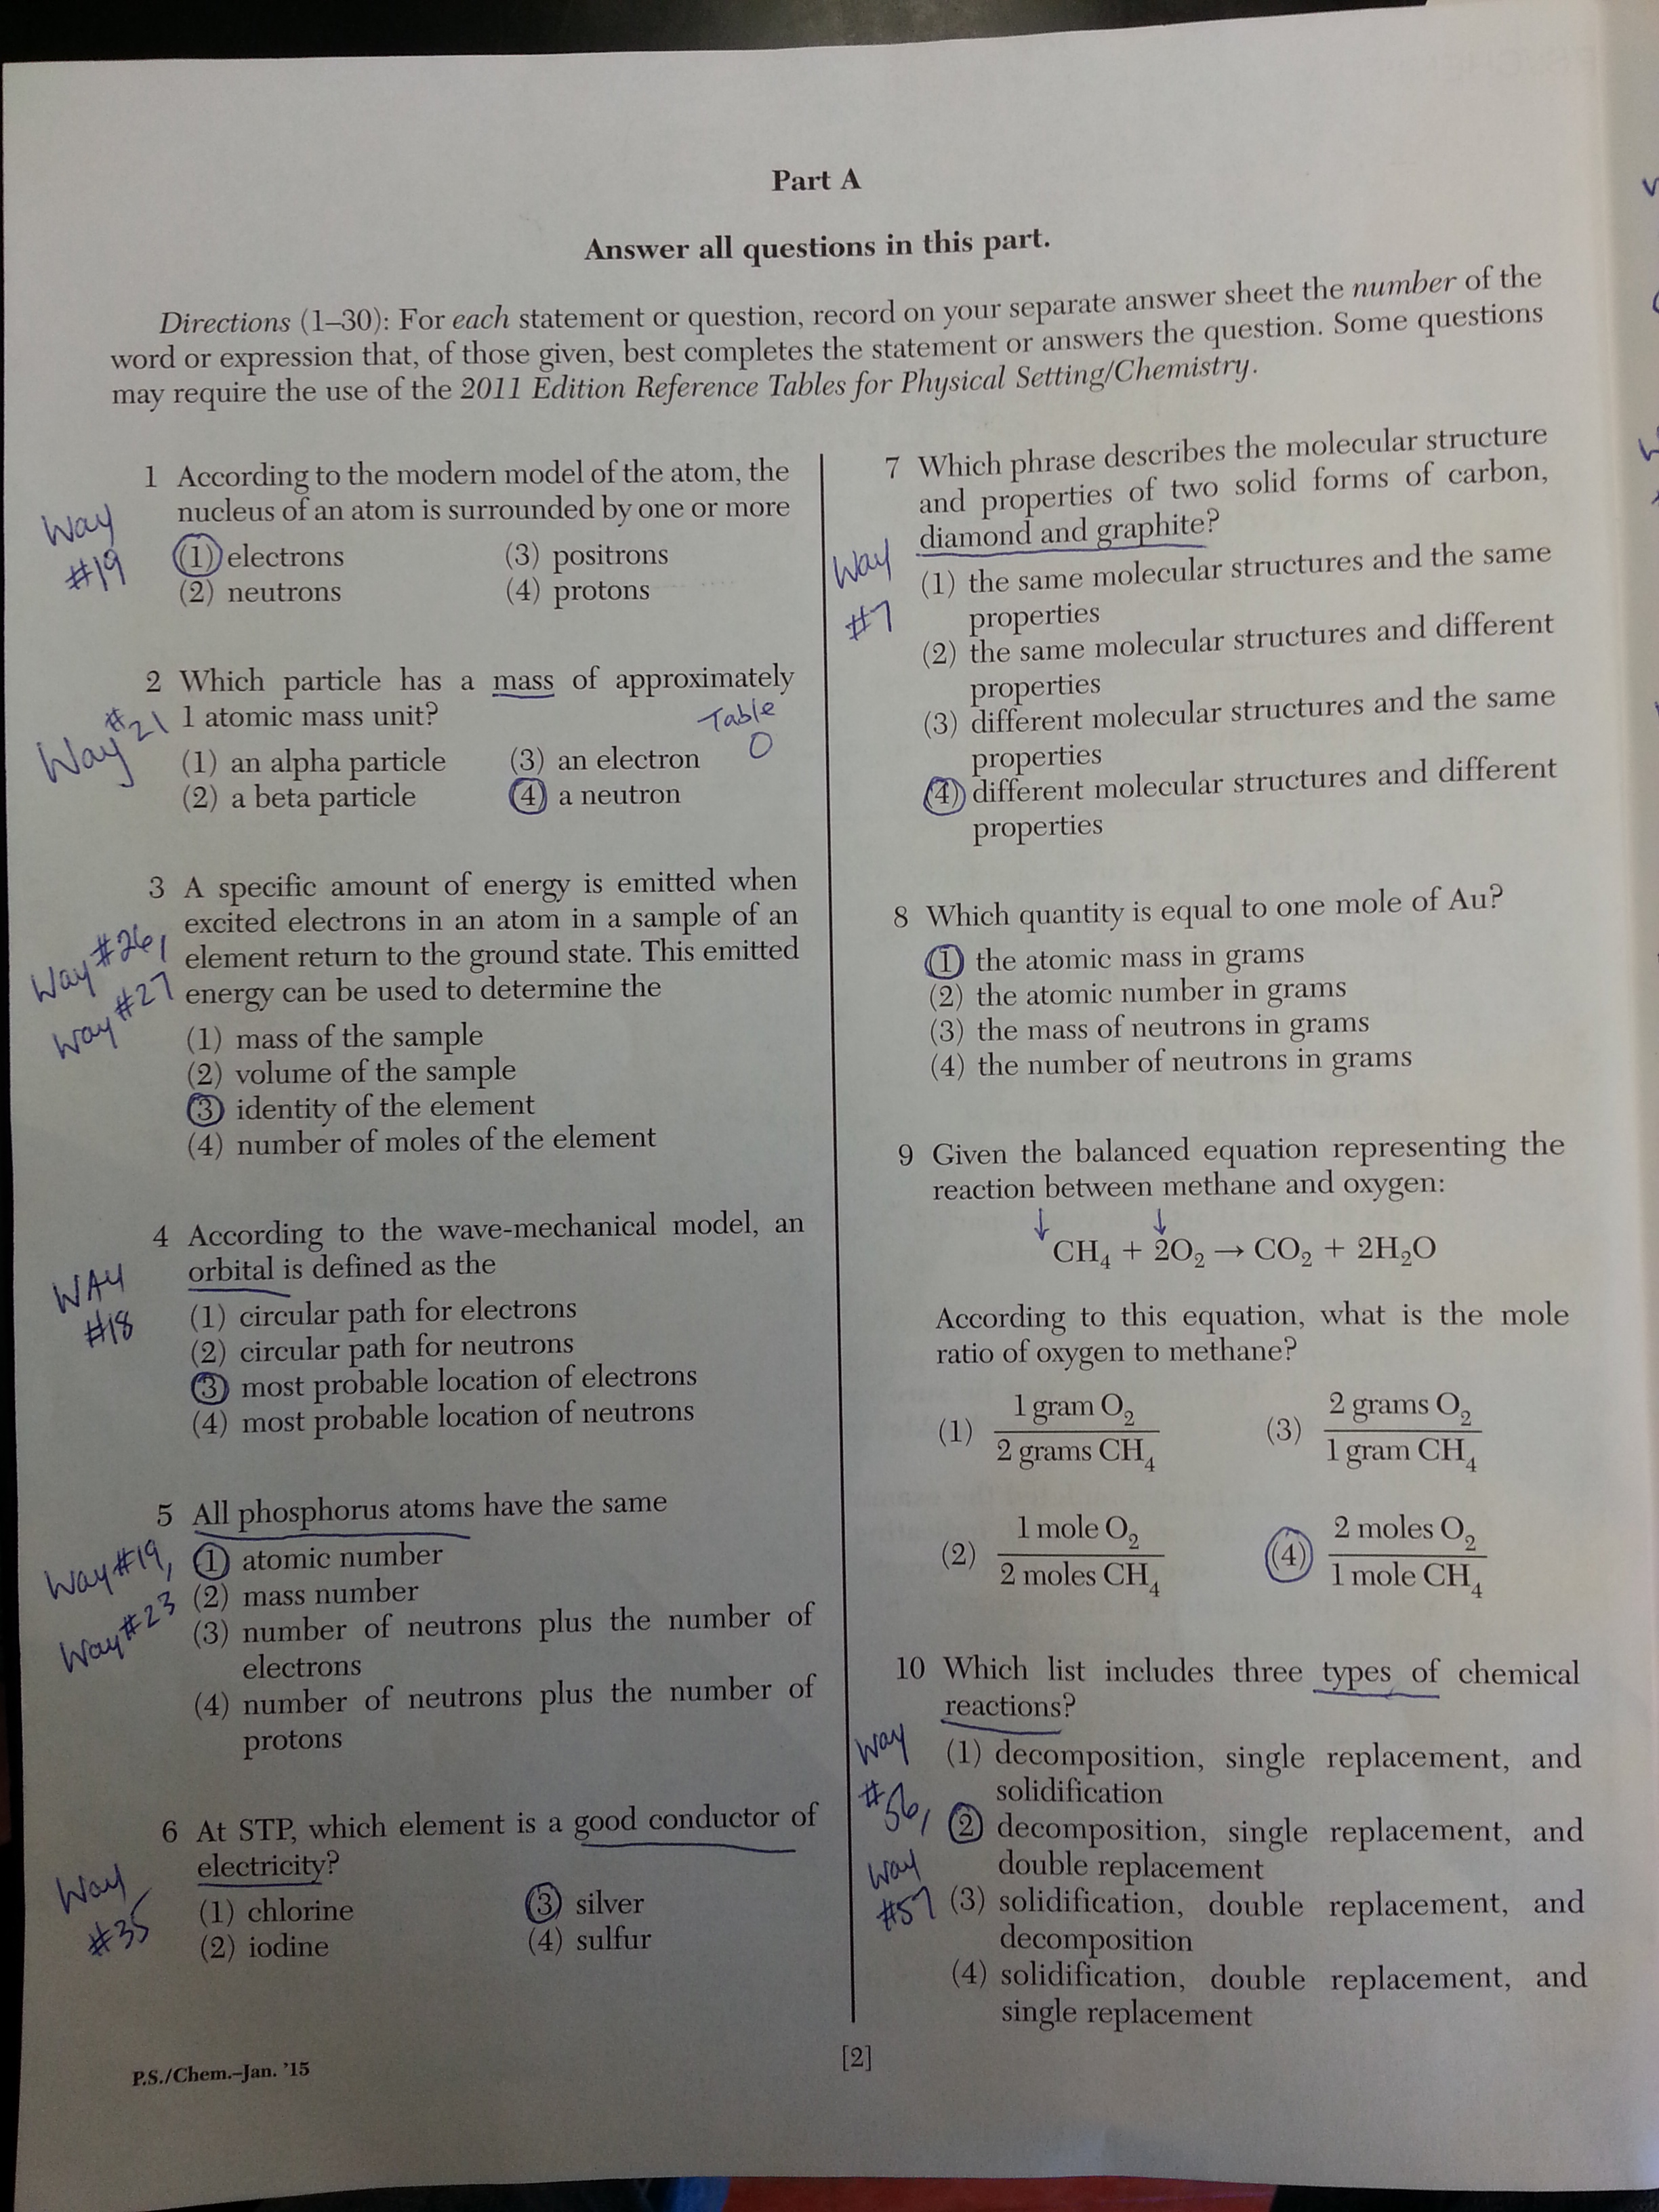 Part A
Answer all questions in this part.
Directions (1–30): For each statement or question, record on your separate answer sheet the number of the
word or expression that, of those given, best completes the statement or answers the question. Some questions
may require the use of the 2011 Edition Reference Tables for Physical Setting/Chemistry.
1 According to the modern model of the atom, the
nucleus of an atom is surrounded by one or more
Way
#19
(1) electrons (3) positrons
(2) neutrons (4) protons
2 Which particle has a mass of approximately
1 atomic mass unit?
Way #21
Table
O
(1) an alpha particle (3) an electron
(2) a beta particle (4) a neutron
3 A specific amount of energy is emitted when
excited electrons in an atom in a sample of an
element return to the ground state. This emitted
energy can be used to determine the
Way #26,
Way #27
(1) mass of the sample
(2) volume of the sample
(3) identity of the element
(4) number of moles of the element
4 According to the wave-mechanical model, an
orbital is defined as the
WAY
#18
(1) circular path for electrons
(2) circular path for neutrons
(3) most probable location of electrons
(4) most probable location of neutrons
5 All phosphorus atoms have the same
Way #19,
Way #23
(1) atomic number
(2) mass number
(3) number of neutrons plus the number of
electrons
(4) number of neutrons plus the number of
protons
6 At STP, which element is a good conductor of
electricity?
Way
#35
(1) chlorine (3) silver
(2) iodine (4) sulfur
7 Which phrase describes the molecular structure
and properties of two solid forms of carbon,
diamond and graphite?
Way
#7
(1) the same molecular structures and the same
properties
(2) the same molecular structures and different
properties
(3) different molecular structures and the same
properties
(4) different molecular structures and different
properties
8 Which quantity is equal to one mole of Au?
(1) the atomic mass in grams
(2) the atomic number in grams
(3) the mass of neutrons in grams
(4) the number of neutrons in grams
9 Given the balanced equation representing the
reaction between methane and oxygen:
↓ ↓
CH₄ + 2O₂ → CO₂ + 2H₂O
According to this equation, what is the mole
ratio of oxygen to methane?
(1) 1 gram O₂ / 2 grams CH₄ (3) 2 grams O₂ / 1 gram CH₄
(2) 1 mole O₂ / 2 moles CH₄ (4) 2 moles O₂ / 1 mole CH₄
10 Which list includes three types of chemical
reactions?
Way
#56,
Way
#57
(1) decomposition, single replacement, and
solidification
(2) decomposition, single replacement, and
double replacement
(3) solidification, double replacement, and
decomposition
(4) solidification, double replacement, and
single replacement
P.S./Chem.–Jan. ’15
[2]